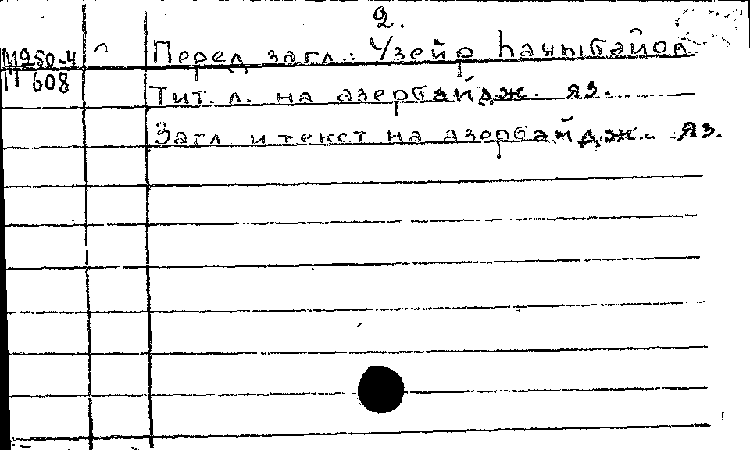 2.
М250-4
П 608
Перед загл.: Узейр Һаҹыбайов
Тит. л. на азербайдж. яз.
Загл и текст на азербайдж. яз.